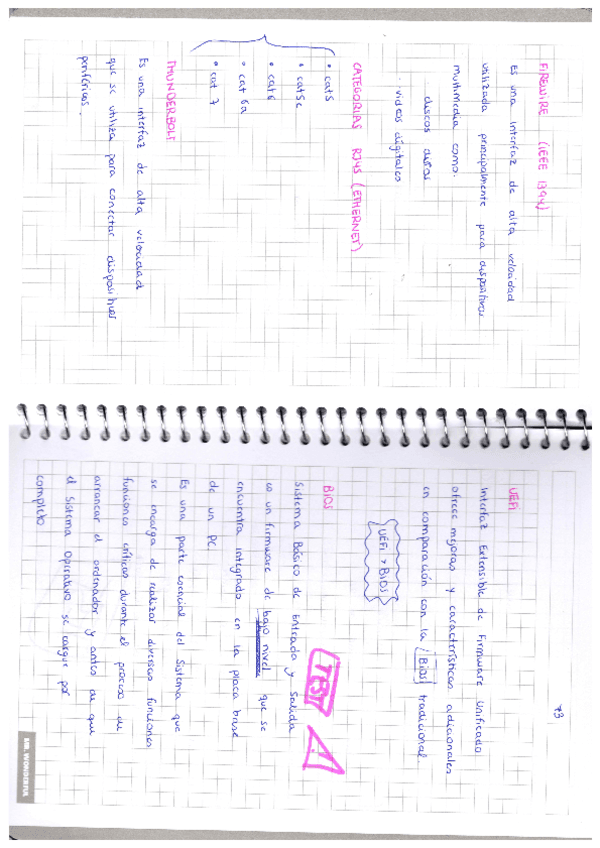 FIREWIRE (IEEE 1394)
Es una interfaz de alta velocidad
utilizada principalmente para dispositivos
multimedia como:
discos duros
· videos digitales
CATEGORIAS RJ45 (ETHERNET)
• cat5
• cat5e
• cat6
• cat 6a
• cat 7
THUNDERBOLT
Es una interfaz de alta velocidad
que se utiliza para conectar dispositivos
periféricos.
73
UEFI
Interfaz Extensible de Firmware Unificado
ofrece mejoras y características adicionales
en comparación con la BIOS tradicional.
UEFI > BIOS
BIOS
TEST
Sistema Básico de Entrada y Salida
es un firmware de bajo nivel que se
encuentra integrado en la placa base
de un PC.
Es una parte esencial del Sistema que
se encarga de realizar diversas funciones
funciones críticas durante el proceso de
arrancar el ordenador y antes de que
el Sistema Operativo se cargue por
completo
MR. WONDERFUL